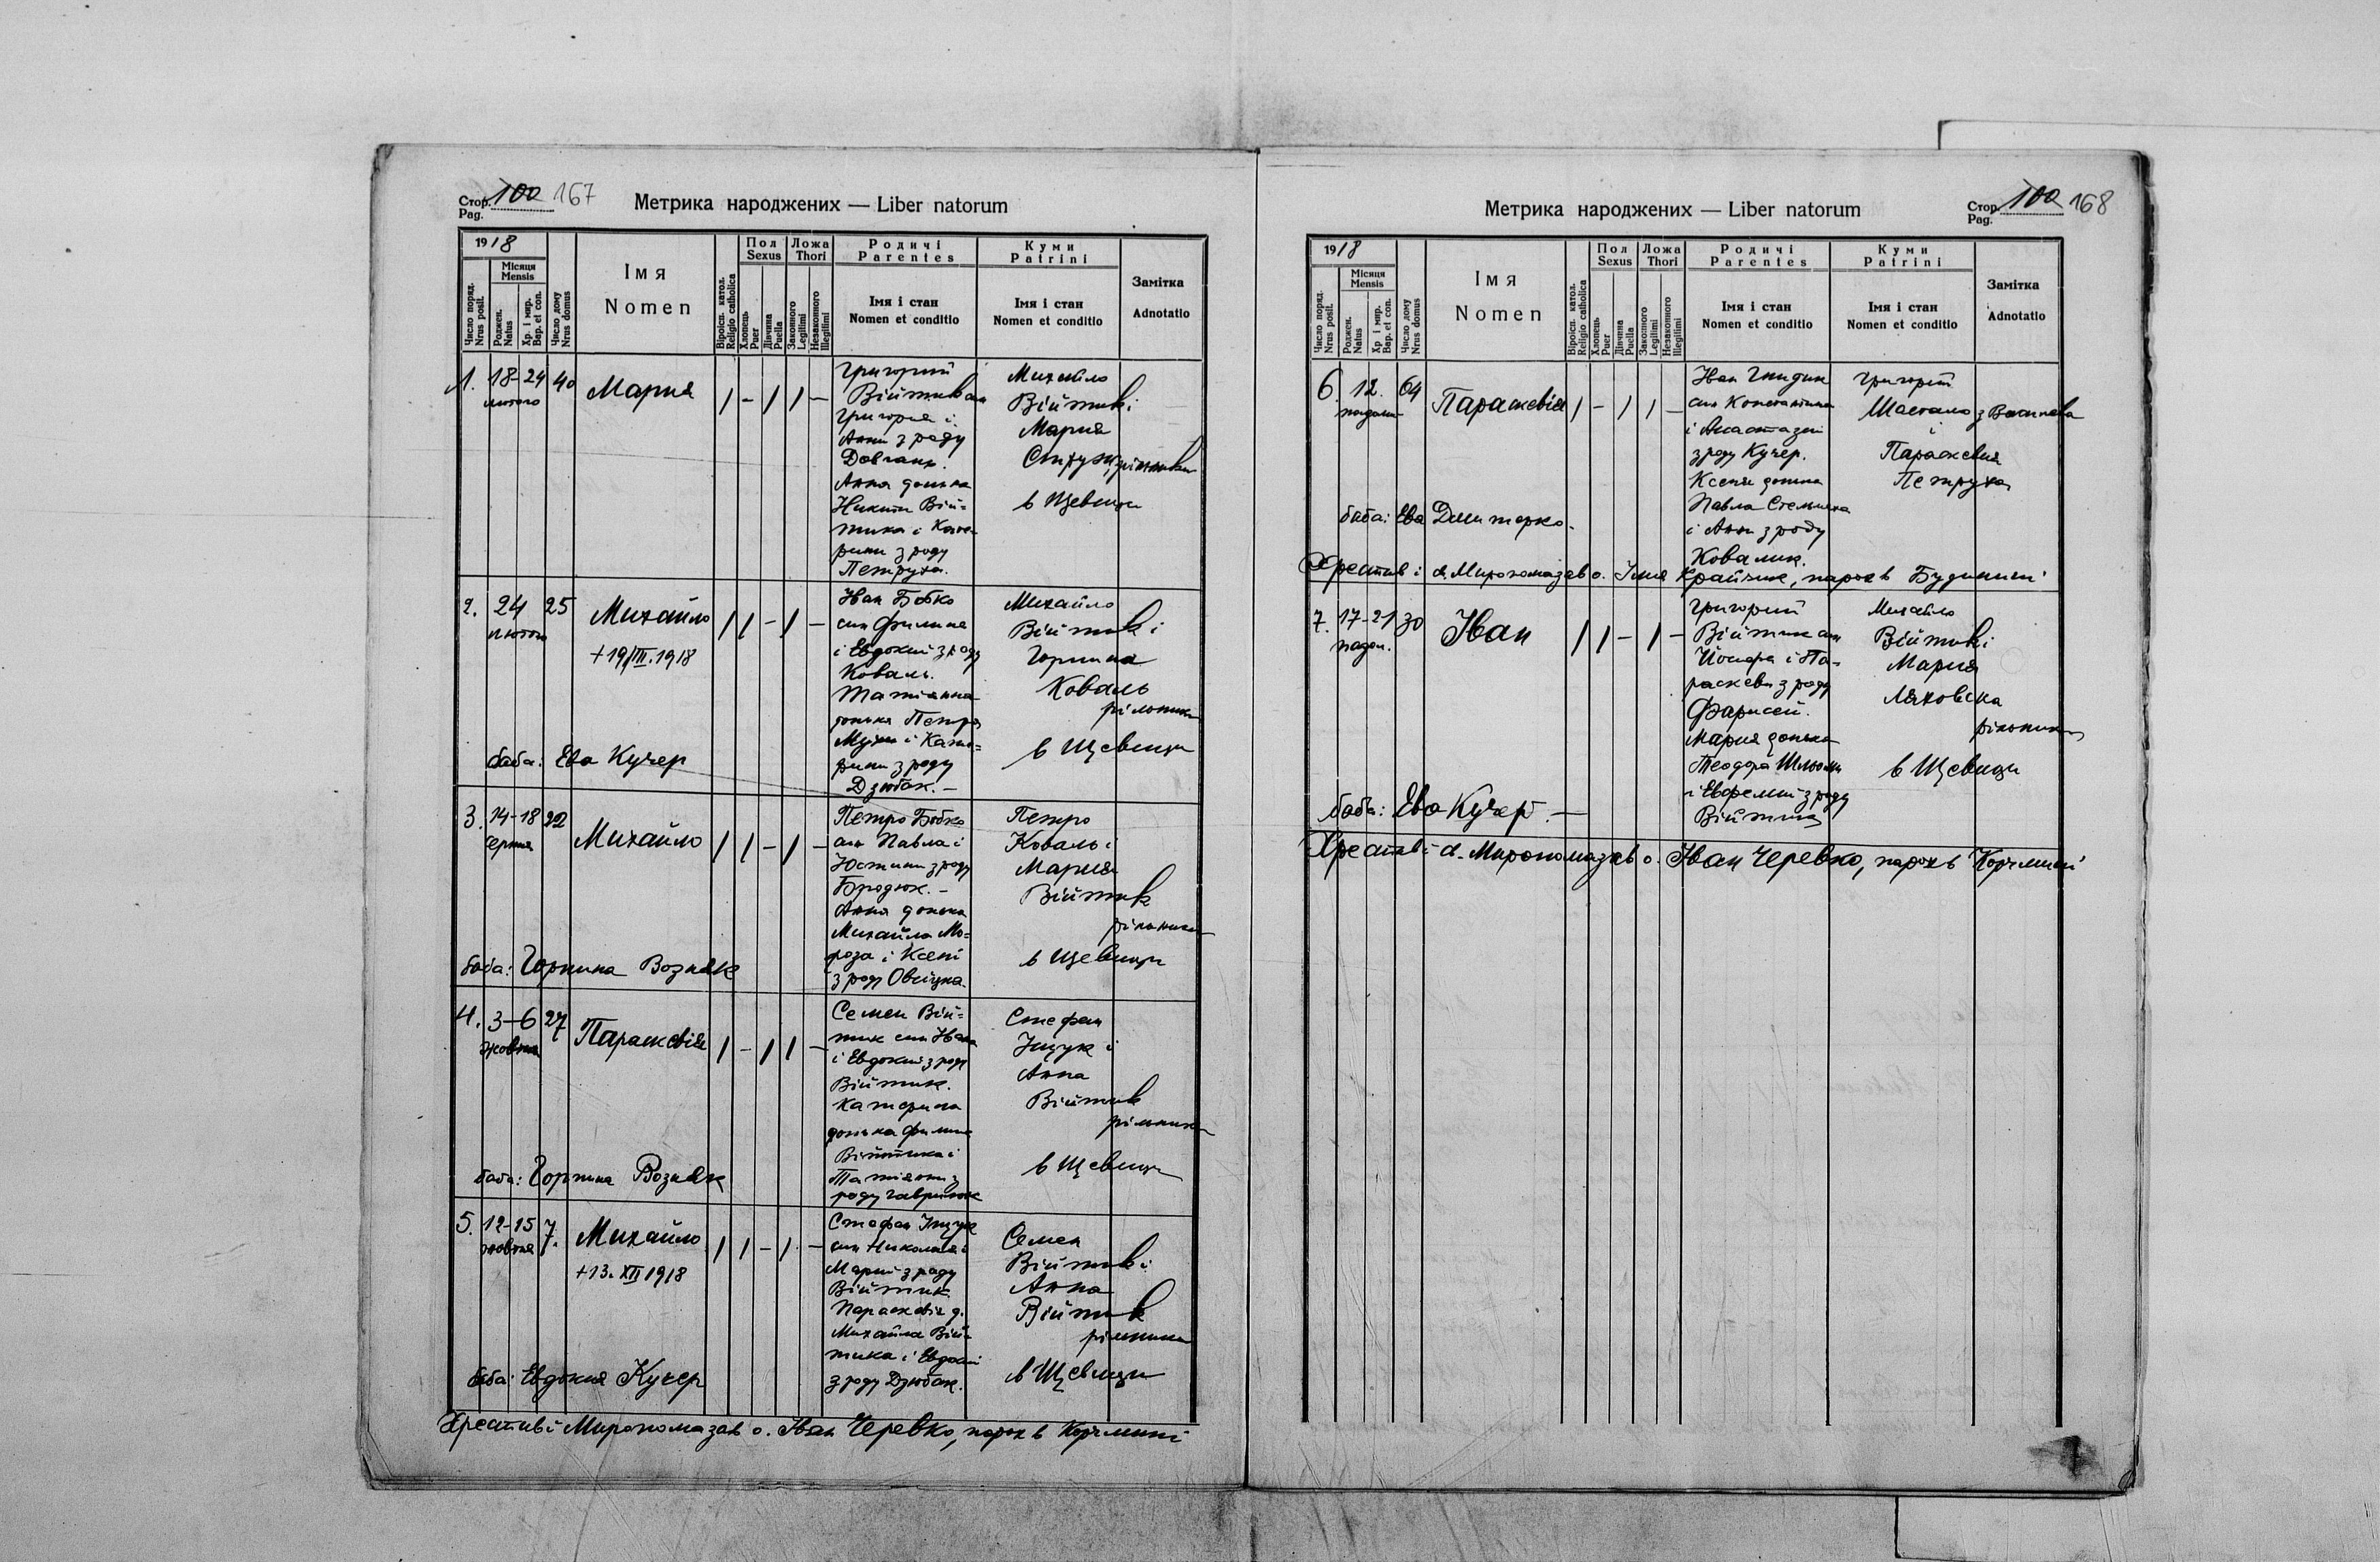 Стор. 100 167
Pag.
Метрика народжених — Liber natorum
1918
Місяця
Mensis
Число поряд.
Nrus posit.
Роджен.
Natus
Хр. і мир.
Bap. et con.
Число дому
Nrus domus
Імя
Nomen
Віроісп. катол.
Religio catholica
Пол
Sexus
Хлопець
Puer
Дівчина
Puella
Ложа
Thori
Законного
Legitimi
Незаконного
Illegitimi
Родичі
Parentes
Імя і стан
Nomen et conditio
Куми
Patrini
Імя і стан
Nomen et conditio
Замітка
Adnotatio
1. 18-24 40 Мария / - / / -
лютого
Григорий
Війтик син
Григория і
Анни з роду
Довгань.
Анна донька
Никити Вій-
тика і Кате-
рини з роду
Петруха.
Михайло
Війтик і
Мария
рільники
в Щевици
2. 24 25 Михайло / / - / -
лютого
+19/III.1918
Иван Бобко
син Филипа
і Евдокии з роду
Коваль.
Татіянна
донька Петра
Мухи і Кате-
рини з роду
Дзюбак. —
Михайло
Війтик і
Горпина
Коваль
рільники
в Щевици
баба: Ева Кучер
3. 14-18 22 Михайло / / - / -
серпня
Петро Бобко
син Павла і
Юстини з роду
Бродюк. —
Анна донька
Михайла Мо-
роза і Ксені
з роду
Петро
Коваль і
Мария
Війтик
рільники
в Щевици
баба: Горпина Возняк
4. 3-6 27 Параскевія / - / / -
жовтня
Семен Вій-
тик син Ивана
і Евдокии з роду
Війтик.
Катерина
донька Филипа
Війтика і
Татіянни з
роду Гаврилюк
Стефан
Іщук і
Анна
Війтик
рільники
в Щевици
баба: Горпина Возняк
5. 12-15 7. Михайло / / - / -
жовтня
+13. XII 1918
Стефан Іщук
син Николая і
Марії з роду
Війтик
Параскевія д.
Михайла Вій-
тика і Евдокії
з роду Дзюбак.
Семен
Війтик і
Анна
Війтик
рільники
в Щевици
баба: Евдокия Кучер
Хрестив і Миропомазав о. Іван Черевко, парох в Корчмині
Метрика народжених — Liber natorum
Стор. 100 168
Pag.
1918
Місяця
Mensis
Число поряд.
Nrus posit.
Роджен.
Natus
Хр. і мир.
Bap. et con.
Число дому
Nrus domus
Імя
Nomen
Віроісп. катол.
Religio catholica
Пол
Sexus
Хлопець
Puer
Дівчина
Puella
Ложа
Thori
Законного
Legitimi
Незаконного
Illegitimi
Родичі
Parentes
Імя і стан
Nomen et conditio
Куми
Patrini
Імя і стан
Nomen et conditio
Замітка
Adnotatio
6. 12. 64 Параскевія / - / / -
Иван
син Константина
і Анастазії
з роду Кучер.
Ксеня донька
Павла Стельмаха
і Анни з роду
Ковалик.
Григорій
і
Параскевия
Петруха
баба: Ева Дмитерко.
Хрестив і Миропомазав о. Крайчик, парох в Будинині
7. 17-21 30 Іван / / - / -
падол.
Григорий
Війтик син
Йосифа і Па-
раскеви з роду
Фарисей.
Мария донька
Теодора
і Евфемії з роду
Війтик
Михайло
Війтик і
Мария
Ляховска
рільники
в Щевици
баба: Ева Кучер. —
Хрестив і Миропомазав о. Іван Черевко, парох в Корчмині